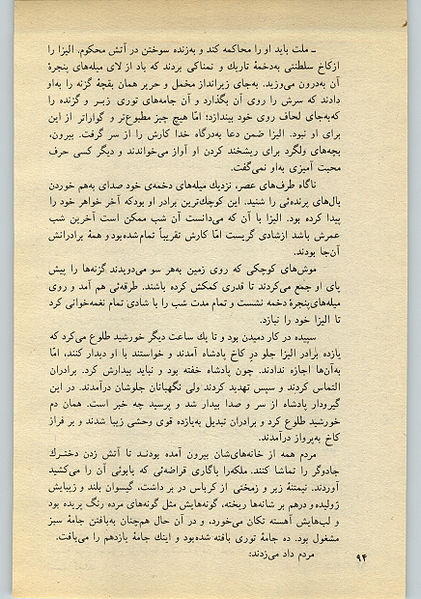 ـ ملت باید او را محاکمه کند و به‌زنده سوختن در آتش محکوم. الیزا را
ازکاخ سلطنتی به‌دخمهٔ تاریك و نمناکی بردند که باد از لای میله‌های پنجرهٔ
آن به‌درون می‌وزید. به‌جای زیرانداز مخمل و حریر همان بقچهٔ گزنه را به‌او
دادند که سرش را روی آن بگذارد و آن جامه‌های توری زبر و گزنده را
که‌به‌جای لحاف روی خود بیندازد؛ امّا هیچ چیز مطبوع‌تر و گواراتر از این
برای او نبود. الیزا ضمن دعا به‌درگاه خدا کارش را از سر گرفت. بیرون،
بچه‌های ولگرد برای ریشخند کردن او آواز می‌خواندند و دیگر کسی حرف
محبت آمیزی به‌او نمی‌گفت.
ناگاه طرف‌های عصر، نزدیك میله‌های دخمه‌ی خود صدای به‌هم خوردن
بال‌های پرنده‌ئی را شنید. این کوچك‌ترین برادر او بودکه آخر خواهر خود را
پیدا کرده بود. الیزا با آن که می‌دانست آن شب ممکن است آخرین شب
عمرش باشد ازشادی گریست امّا کارش تقریباً تمام شده‌بود و همهٔ برادرانش
آن‌جا بودند.
موش‌های کوچکی که روی زمین به‌هر سو می‌دویدند گزنه‌ها را پیش
پای او جمع می‌کردند تا قدری کمکش کرده باشند. طرقه‌ئی هم آمد و روی
میله‌های‌پنجرهٔ دخمه نشست و تمام مدت شب را با شادی تمام نغمه‌خوانی کرد
تا الیزا خود را نبازد.
سپیده در کار دمیدن بود و تا یك ساعت دیگر خورشید طلوع می‌کرد که
یازده برادر الیزا جلو درِ کاخ پادشاه آمدند و خواستند با او دیدار کنند، امّا
به‌آن‌ها اجازه ندادند. چون پادشاه خفته بود و نباید بیدارش کرد. برادران
التماس کردند و سپس تهدید کردند ولی نگهبانان جلوشان درآمدند. در این
گیرودار پادشاه از سر و صدا بیدار شد و پرسید چه خبر است. همان دم
خورشید طلوع کرد و برادران تبدیل به‌یازده قوی وحشی زیبا شدند و بر فراز
کاخ به‌پرواز درآمدند.
مردم همه از خانه‌های‌شان بیرون آمده بودند تا آتش زدن دخترك
جادوگر را تماشا کنند. ملکه‌را باگاری قراضه‌ئی که یابوئی آن را می‌کشید
آوردند. نیمتنهٔ زبر و زمختی از کرباس در بر داشت، گیسوان بلند و زیبایش
ژولیده و درهم بر شانه‌ها ریخته، گونه‌هایش مثل گونه‌های مرده رنگ پریده بود
و لب‌هایش آهسته تکان می‌خورد، و در آن حال هم‌چنان به‌بافتن جامهٔ سبز
مشغول بود. ده جامهٔ توری بافته شده‌بود و اینك جامهٔ یازدهم را می‌بافت.
مردم داد می‌زدند:
۹۴